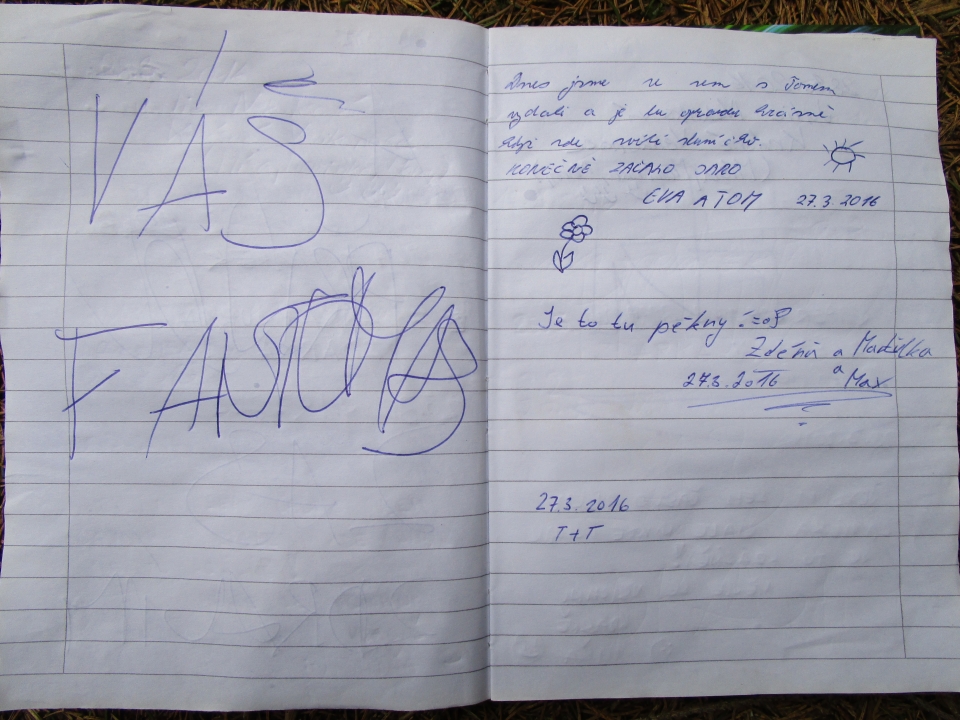 VÁŠ
FANTOMAS
Dnes jsme se sem s Tomem
vydali a je tu opravdu krásně
když zde svítí sluníčko.
KONEČNĚ ZAČALO JARO
EVA A TOM 27.3.2016
Je to tu pěkný :=oP
Zdéňa a
a Max
27.3.2016
27.3.2016
T+T